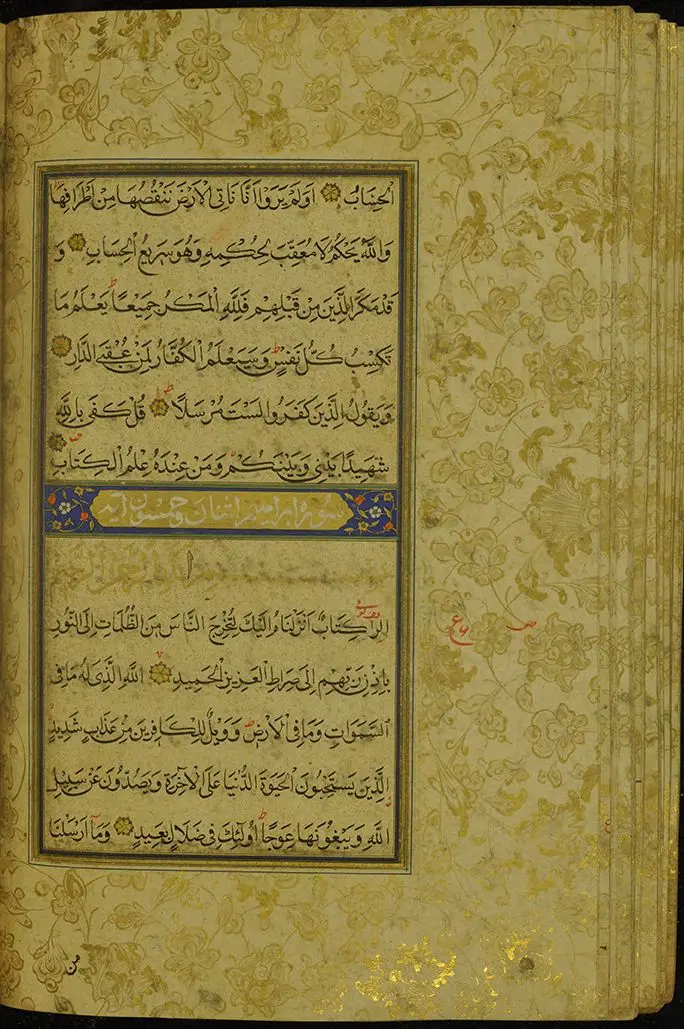 الْحِسَابُ اَوَلَمْ يَرَوْا اَنَّا نَاْتِى الْاَرْضَ نَنْقُصُهَا مِنْ اَطْرَافِهَا
وَاللّٰهُ يَحْكُمُ لَا مُعَقِّبَ لِحُكْمِهٖ وَهُوَ سَرِيعُ الْحِسَابِ وَ
قَدْ مَكَرَ الَّذِينَ مِنْ قَبْلِهِمْ فَلِلّٰهِ الْمَكْرُ جَمِيعًا يَعْلَمُ مَا
تَكْسِبُ كُلُّ نَفْسٍ وَسَيَعْلَمُ الْكُفَّارُ لِمَنْ عُقْبَى الدَّارِ
وَيَقُولُ الَّذِينَ كَفَرُوا لَسْتَ مُرْسَلًا قُلْ كَفٰى بِاللّٰهِ
شَهِيدًا بَيْنِى وَبَيْنَكُمْ وَمَنْ عِنْدَهُ عِلْمُ الْكِتَابِ
سورة ابراهيم اثنتان وخمسون آية
الٓرٰ كِتَابٌ اَنْزَلْنَاهُ اِلَيْكَ لِتُخْرِجَ النَّاسَ مِنَ الظُّلُمَاتِ اِلَى النُّورِ
بِاِذْنِ رَبِّهِمْ اِلٰى صِرَاطِ الْعَزِيزِ الْحَمِيدِ اَللّٰهِ الَّذِى لَهُ مَا فِى
السَّمٰوَاتِ وَمَا فِى الْاَرْضِ وَوَيْلٌ لِلْكَافِرِينَ مِنْ عَذَابٍ شَدِيدٍ
الَّذِينَ يَسْتَحِبُّونَ الْحَيٰوةَ الدُّنْيَا عَلَى الْاٰخِرَةِ وَيَصُدُّونَ عَنْ سَبِيلِ
اللّٰهِ وَيَبْغُونَهَا عِوَجًا اُولٰئِكَ فِى ضَلَالٍ بَعِيدٍ وَمَا اَرْسَلْنَا
من